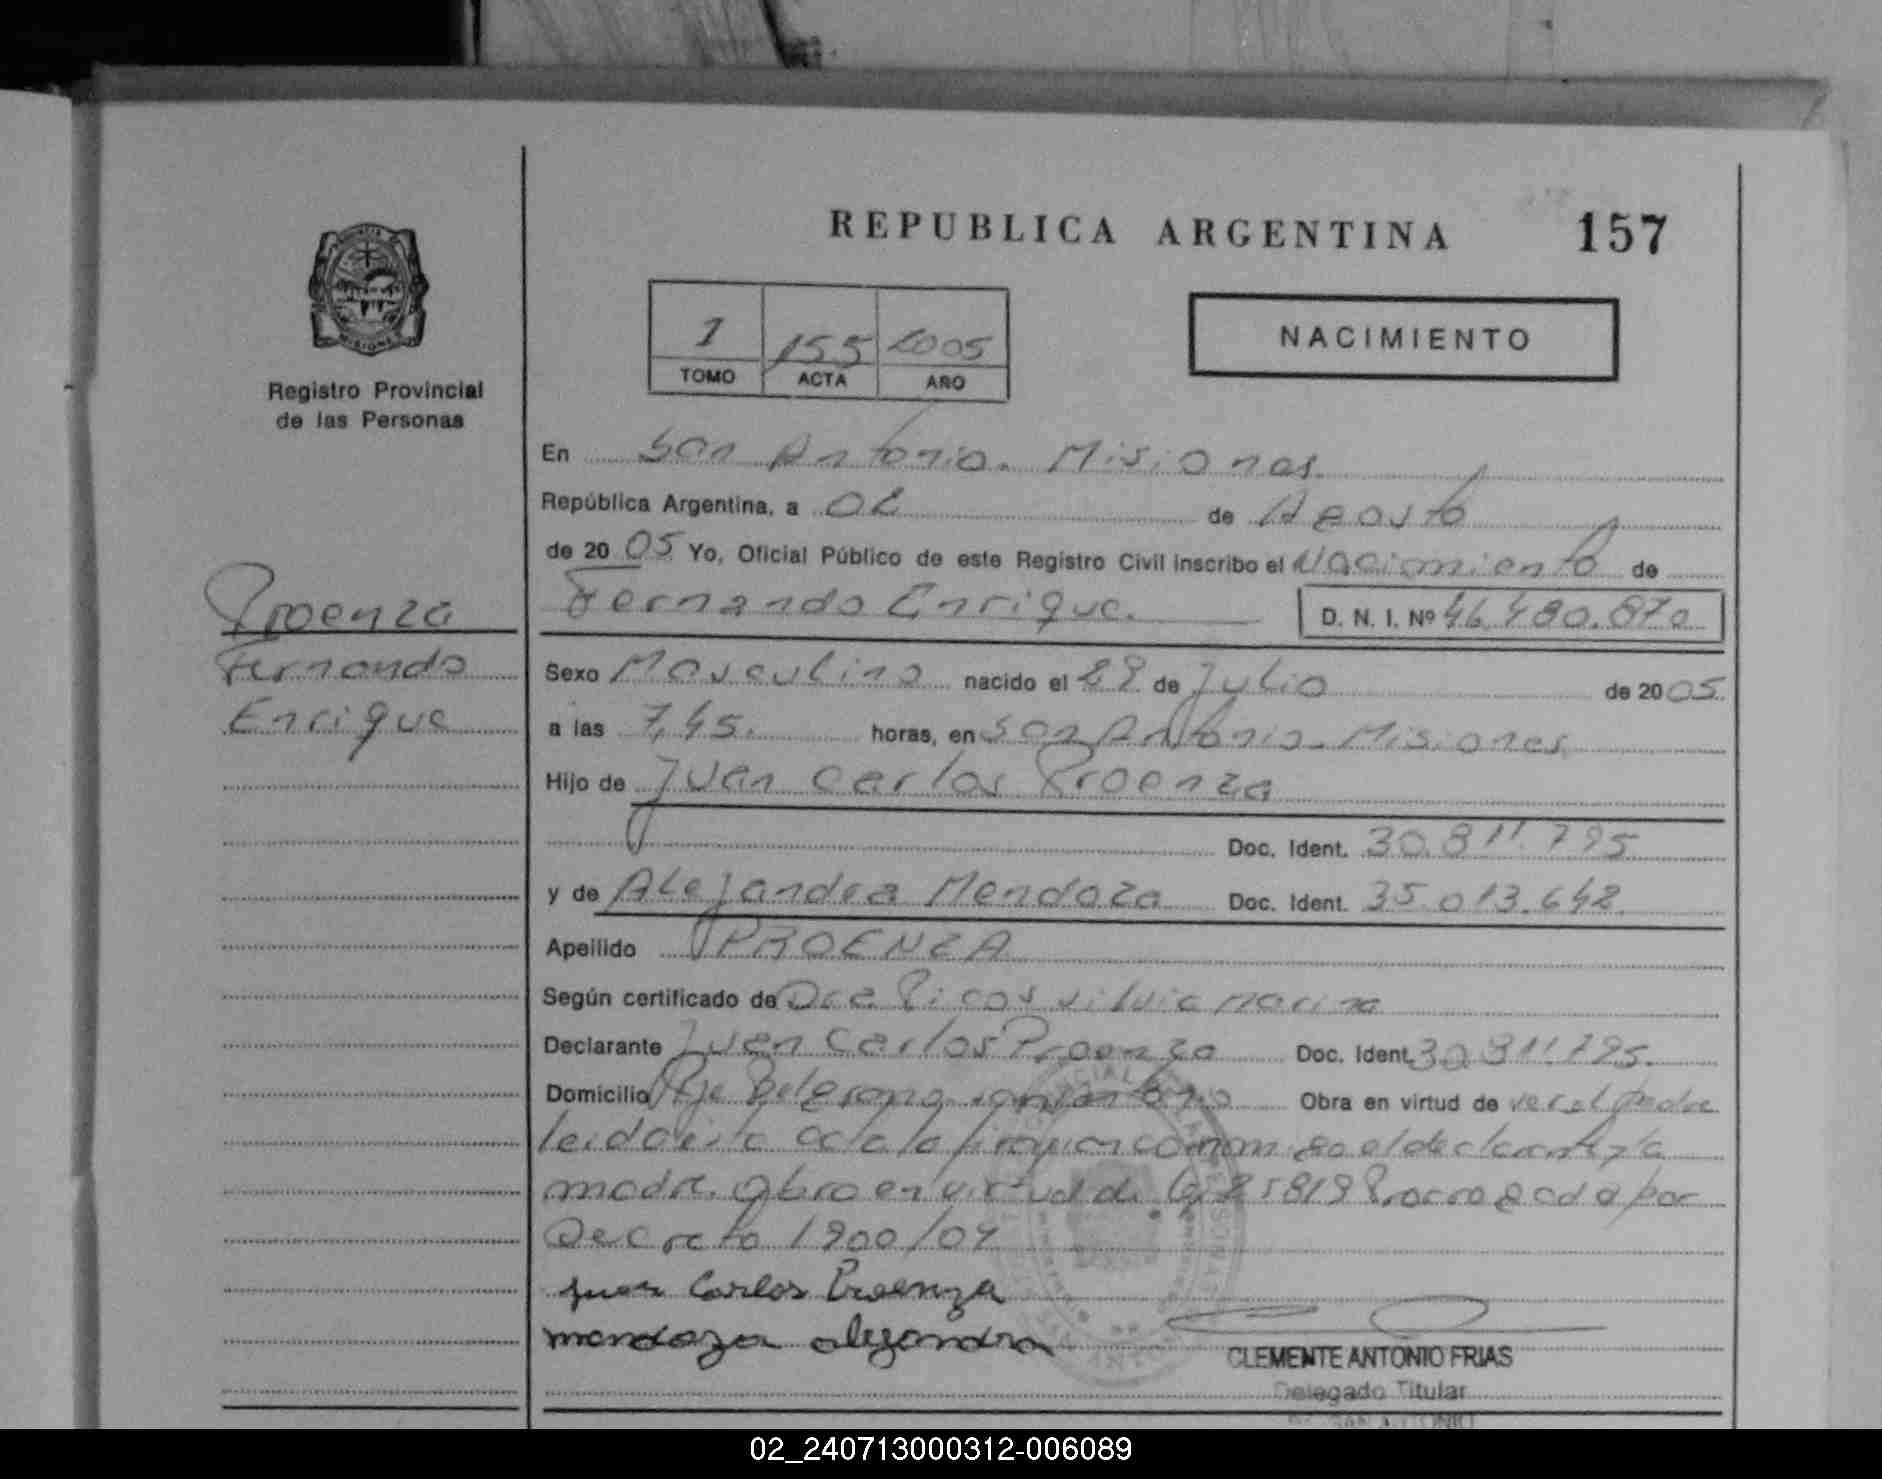 REPUBLICA ARGENTINA 157
Registro Provincial
de las Personas
1 155 2005
TOMO ACTA AÑO
NACIMIENTO
En San Antonio. Misiones.
República Argentina, a 02 de Agosto
de 20 05 Yo, Oficial Público de este Registro Civil inscribo el Nacimiento de
Fernando Enrique. D. N. I. Nº 46.480.870
Proenza
Fernando
Enrique
Sexo Masculino nacido el 29 de Julio de 20 05.
a las 7,45. horas, en San Antonio - Misiones
Hijo de Juan Carlos Proenza
Doc. Ident. 30.811.795
y de Alejandra Mendoza Doc. Ident. 35.013.642
Apellido PROENZA
Según certificado de Dra. Picos Silvia Marina
Declarante Juan Carlos Proenza Doc. Ident. 30.811.795.
Domicilio Pje Belgrano San Antonio Obra en virtud de ser el padre
leida el acta la firman conmigo el declarante y la
madre. Obra en virtud de Ley 25819 Prorrogada por
Decreto 1900/04
Juan Carlos Proenza
mendoza alejandra
CLEMENTE ANTONIO FRIAS
Delegado Titular
SAN ANTONIO
02_240713000312-006089